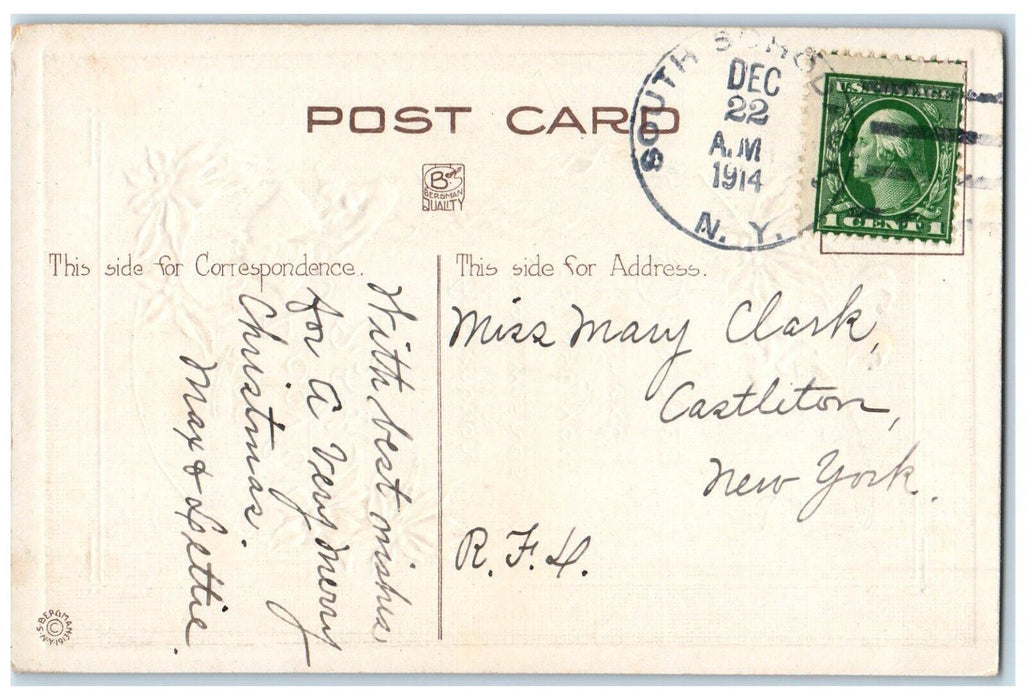 POST CARD
B
BERGMAN
QUALITY
SOUTH
DEC
22
A.M
1914
N. Y.
U.S. POSTAGE
1 CENT 1
This side for Correspondence.
With best wishes
for a Very Merry
Christmas.
Max & Lettie.
This side for Address.
Miss Mary Clark,
Castleton,
New York.
R. F. D.
BERGMAN
© 1913
N.Y.